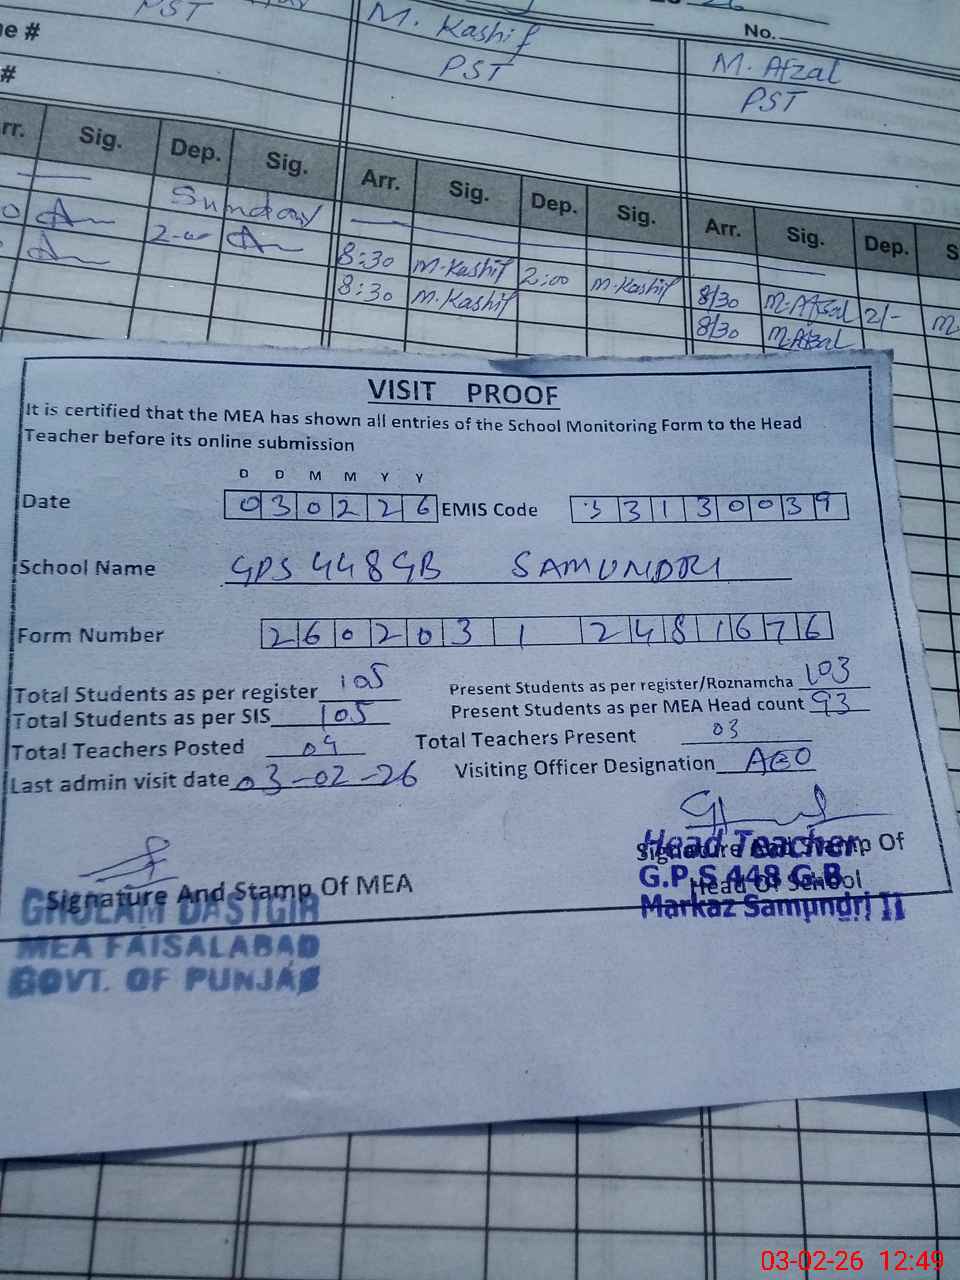 PST
M. Kashif
PST
No.
M. Afzal
PST
#
Sig. Dep. Sig. Arr. Sig. Dep. Sig. Arr. Sig. Dep.
Sunday
8:30 M.Kashif 2:00 M.Kashif 8/30 M.Afzal 2/-
8:30 M.Kashif 8/30 M.Afzal
VISIT PROOF
It is certified that the MEA has shown all entries of the School Monitoring Form to the Head
Teacher before its online submission
D D M M Y Y
Date 030226 EMIS Code 33130039
School Name GPS 448 GB SAMUNDRI
Form Number 260203 1 2481676
Total Students as per register 105 Present Students as per register/Roznamcha 103
Total Students as per SIS 105 Present Students as per MEA Head count 93
Total Teachers Posted 04 Total Teachers Present 03
Last admin visit date 03-02-26 Visiting Officer Designation AEO
Signature And Stamp Of MEA
GHULAM DASTGIR
MEA FAISALABAD
GOVT. OF PUNJAB
Signature And Stamp Of
Head Of School
Head Teacher
G.P.S 448 G.B
Markaz Samundri II
03-02-26 12:49